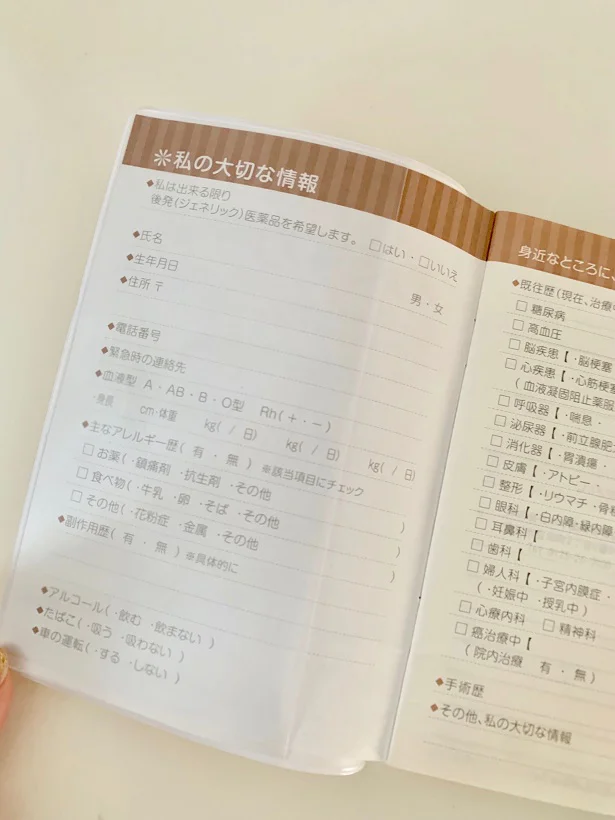 ✻私の大切な情報
◆私は出来る限り
後発(ジェネリック)医薬品を希望します。 □はい・□いいえ
◆氏名
◆生年月日 男・女
◆住所 〒
◆電話番号
◆緊急時の連絡先
◆血液型 A・AB・B・O型 Rh(+・-)
・身長 cm・体重 kg( / 日) kg( / 日) kg( / 日)
◆主なアレルギー歴( 有 ・ 無 ) ※該当項目にチェック
□お薬(・鎮痛剤 ・抗生剤 ・その他 )
□食べ物(・牛乳 ・卵 ・そば ・その他 )
□その他(・花粉症 ・金属 ・その他 )
◆副作用歴( 有 ・ 無 ) ※具体的に
◆アルコール(・飲む ・飲まない )
◆たばこ(・吸う ・吸わない )
◆車の運転(・する ・しない )
身近なところに、
◆既往歴(現在、治療
□糖尿病
□高血圧
□脳疾患【・脳梗塞
□心疾患【・心筋梗塞
(血液凝固阻止薬服
□呼吸器【・喘息・
□泌尿器【・前立腺肥
□消化器【・胃潰瘍・
□皮膚【・アトピー・
□整形【・リウマチ・骨
□眼科【・白内障・緑内障
□耳鼻科【
□歯科【
□婦人科【・子宮内膜症・
(・妊娠中 ・授乳中)
□心療内科 □精神科
□癌治療中【
(院内治療 有 ・ 無)
◆手術歴
◆その他、私の大切な情報